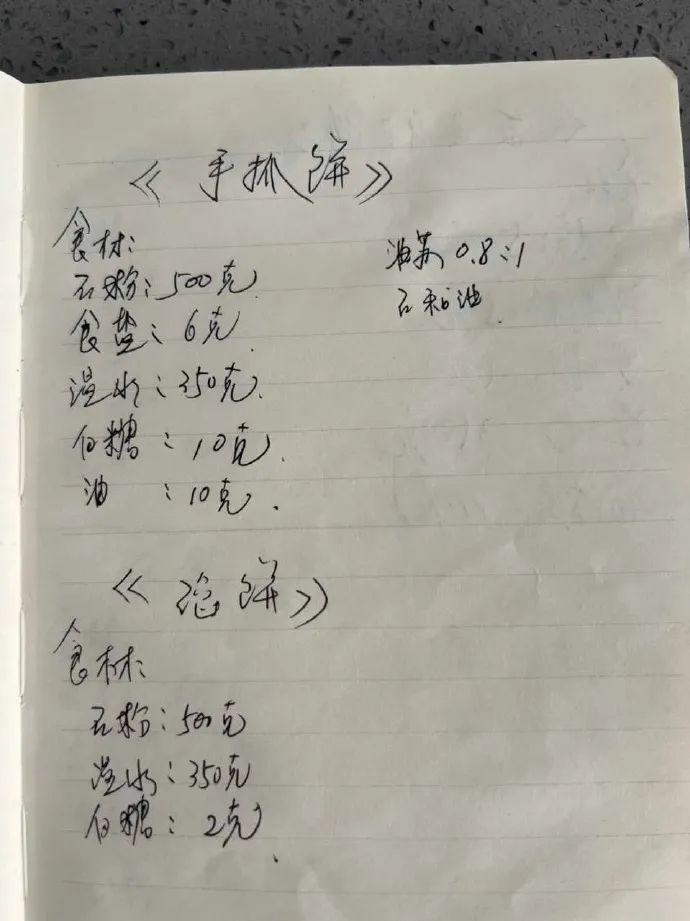 《手抓饼》
食材:
面粉:500克
油苏 0.8:1
食盐:6克.
面和油.
温水:350克.
白糖:10克.
油:10克.
《馅饼》
食材:
面粉:500克
温水:350克
白糖:2克.